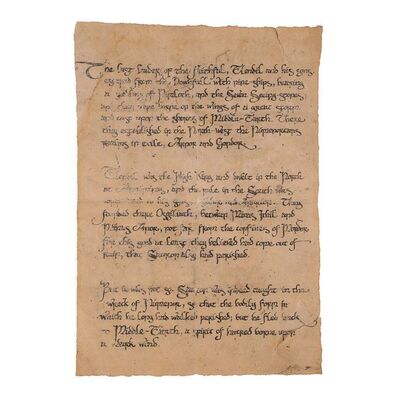 The last leaders of the Faithful, Elendil and his sons,
escaped from the Downfall with nine ships, bearing
a seedling of Nimloth, and the Seven Seeing-stones
and they were borne on the wings of a great storm
and cast upon the shores of Middle-Earth. There
they established in the North-west the Númenorean
realms in exile, Arnor and Gondor.
Elendil was the High King and dwelt in the North
at Annúminas, and the rule in the South was
his sons, Isildur and Anárion. They
founded there Osgiliath, between Minas Ithil and
Minas Anor, not far from the confines of Mordor.
For this good at least they believed had come out of
ruin, that Sauron also had perished.
But it was not so. Sauron was indeed caught in the
wreck of Númenor, so that the bodily form in
which he long had walked perished; but he fled back
to Middle-Earth, a spirit of hatred borne upon
a dark wind.